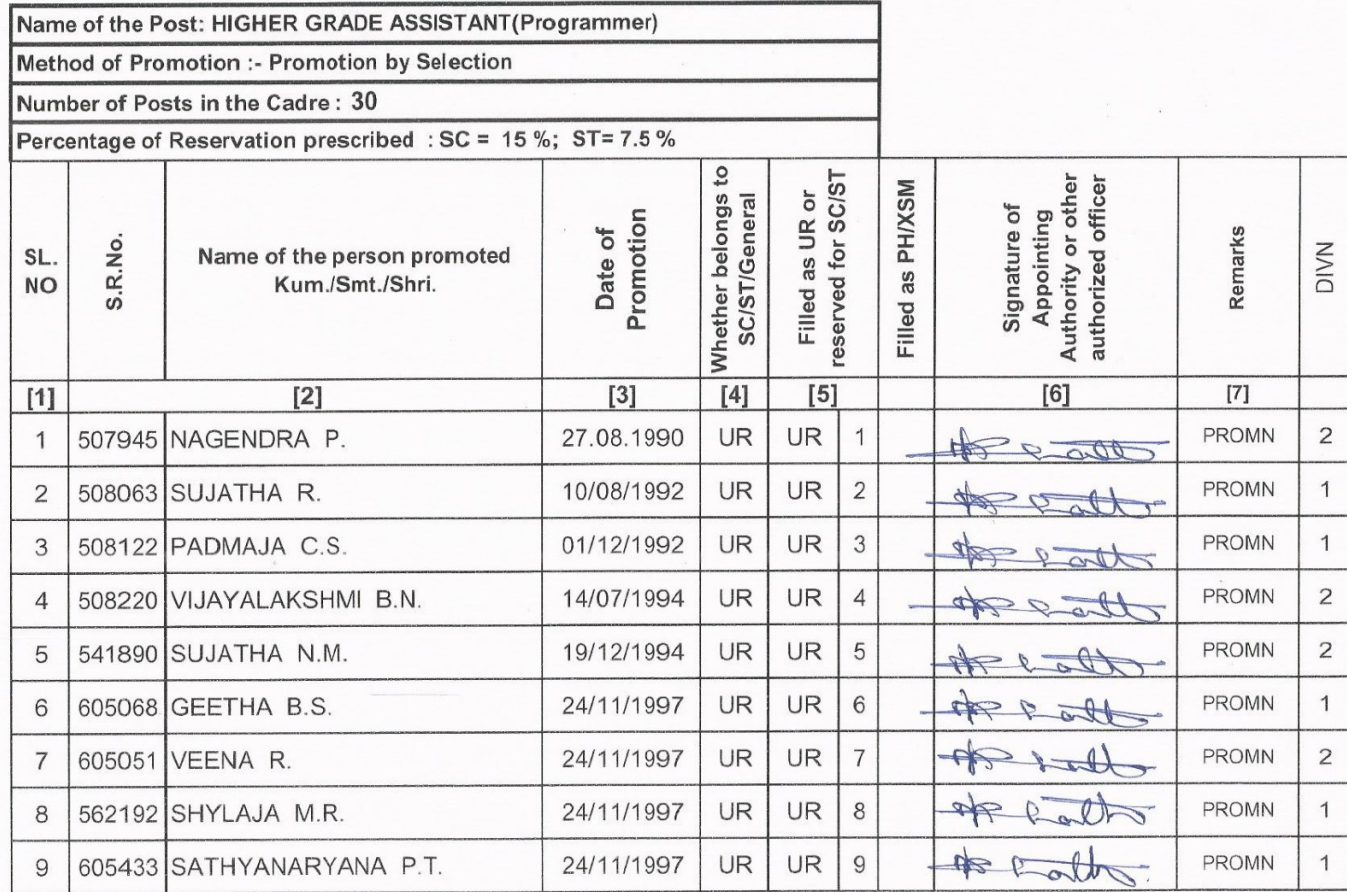 Name of the Post: HIGHER GRADE ASSISTANT(Programmer)
Method of Promotion :- Promotion by Selection
Number of Posts in the Cadre : 30
Percentage of Reservation prescribed : SC = 15 %; ST= 7.5 %
SL. NO S.R.No. Name of the person promoted Kum./Smt./Shri. Date of Promotion Whether belongs to SC/ST/General Filled as UR or reserved for SC/ST Filled as PH/XSM Signature of Appointing Authority or other authorized officer Remarks DIVN
[1] [2] [3] [4] [5] [6] [7]
1 507945 NAGENDRA P. 27.08.1990 UR UR 1 PROMN 2
2 508063 SUJATHA R. 10/08/1992 UR UR 2 PROMN 1
3 508122 PADMAJA C.S. 01/12/1992 UR UR 3 PROMN 1
4 508220 VIJAYALAKSHMI B.N. 14/07/1994 UR UR 4 PROMN 2
5 541890 SUJATHA N.M. 19/12/1994 UR UR 5 PROMN 2
6 605068 GEETHA B.S. 24/11/1997 UR UR 6 PROMN 1
7 605051 VEENA R. 24/11/1997 UR UR 7 PROMN 2
8 562192 SHYLAJA M.R. 24/11/1997 UR UR 8 PROMN 1
9 605433 SATHYANARYANA P.T. 24/11/1997 UR UR 9 PROMN 1